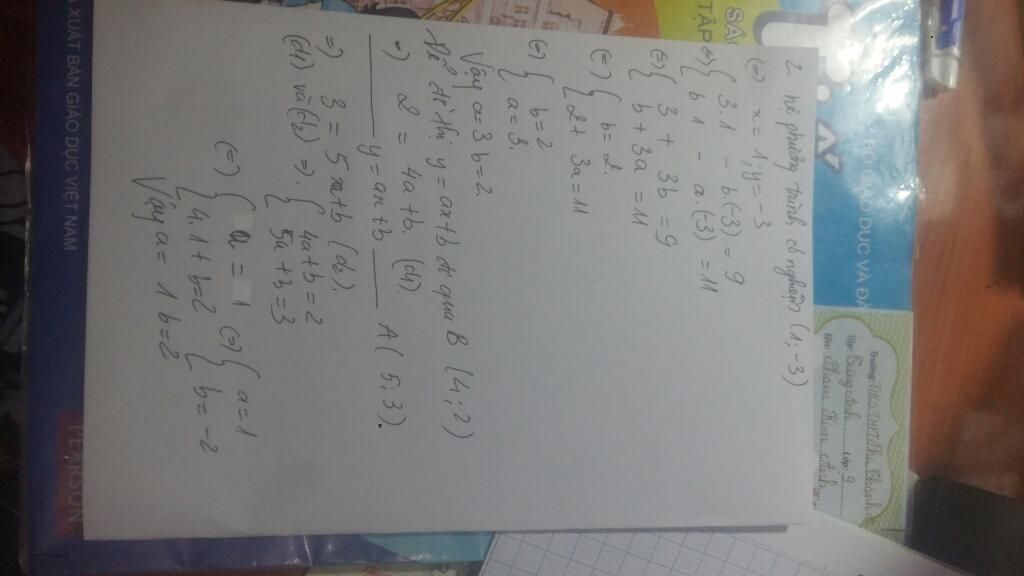 2. hệ phương trình có nghiệm (1; -3)
(=) x = 1, y = -3
(=) { 3.1 - b.(-3) = 9
b.1 - a.(-3) = 11
(=) { 3 + 3b = 9
b + 3a = 11
(=) { b = 2.
2 + 3a = 11
(=) { b = 2
a = 3.
Vậy a = 3 b = 2.
Để đồ thị y = ax + b đi qua B (4; 2)
=) 2 = 4a + b. (d1).
y = ax + b A (5; 3).
=) 3 = 5a + b (d2).
(d1) và (d2) =). { 4a + b = 2
5a + b = 3
(=) { a = 1
4.1 + b = 2
(=) { a = 1
b = -2
Vậy a = 1 b = 2
À XUẤT BẢN GIÁO DỤC VIỆT NAM
PEARSON
BỘ GIÁO DỤC VÀ ĐÀ
TẬP
Trường:
Lớp: 9
Tên: